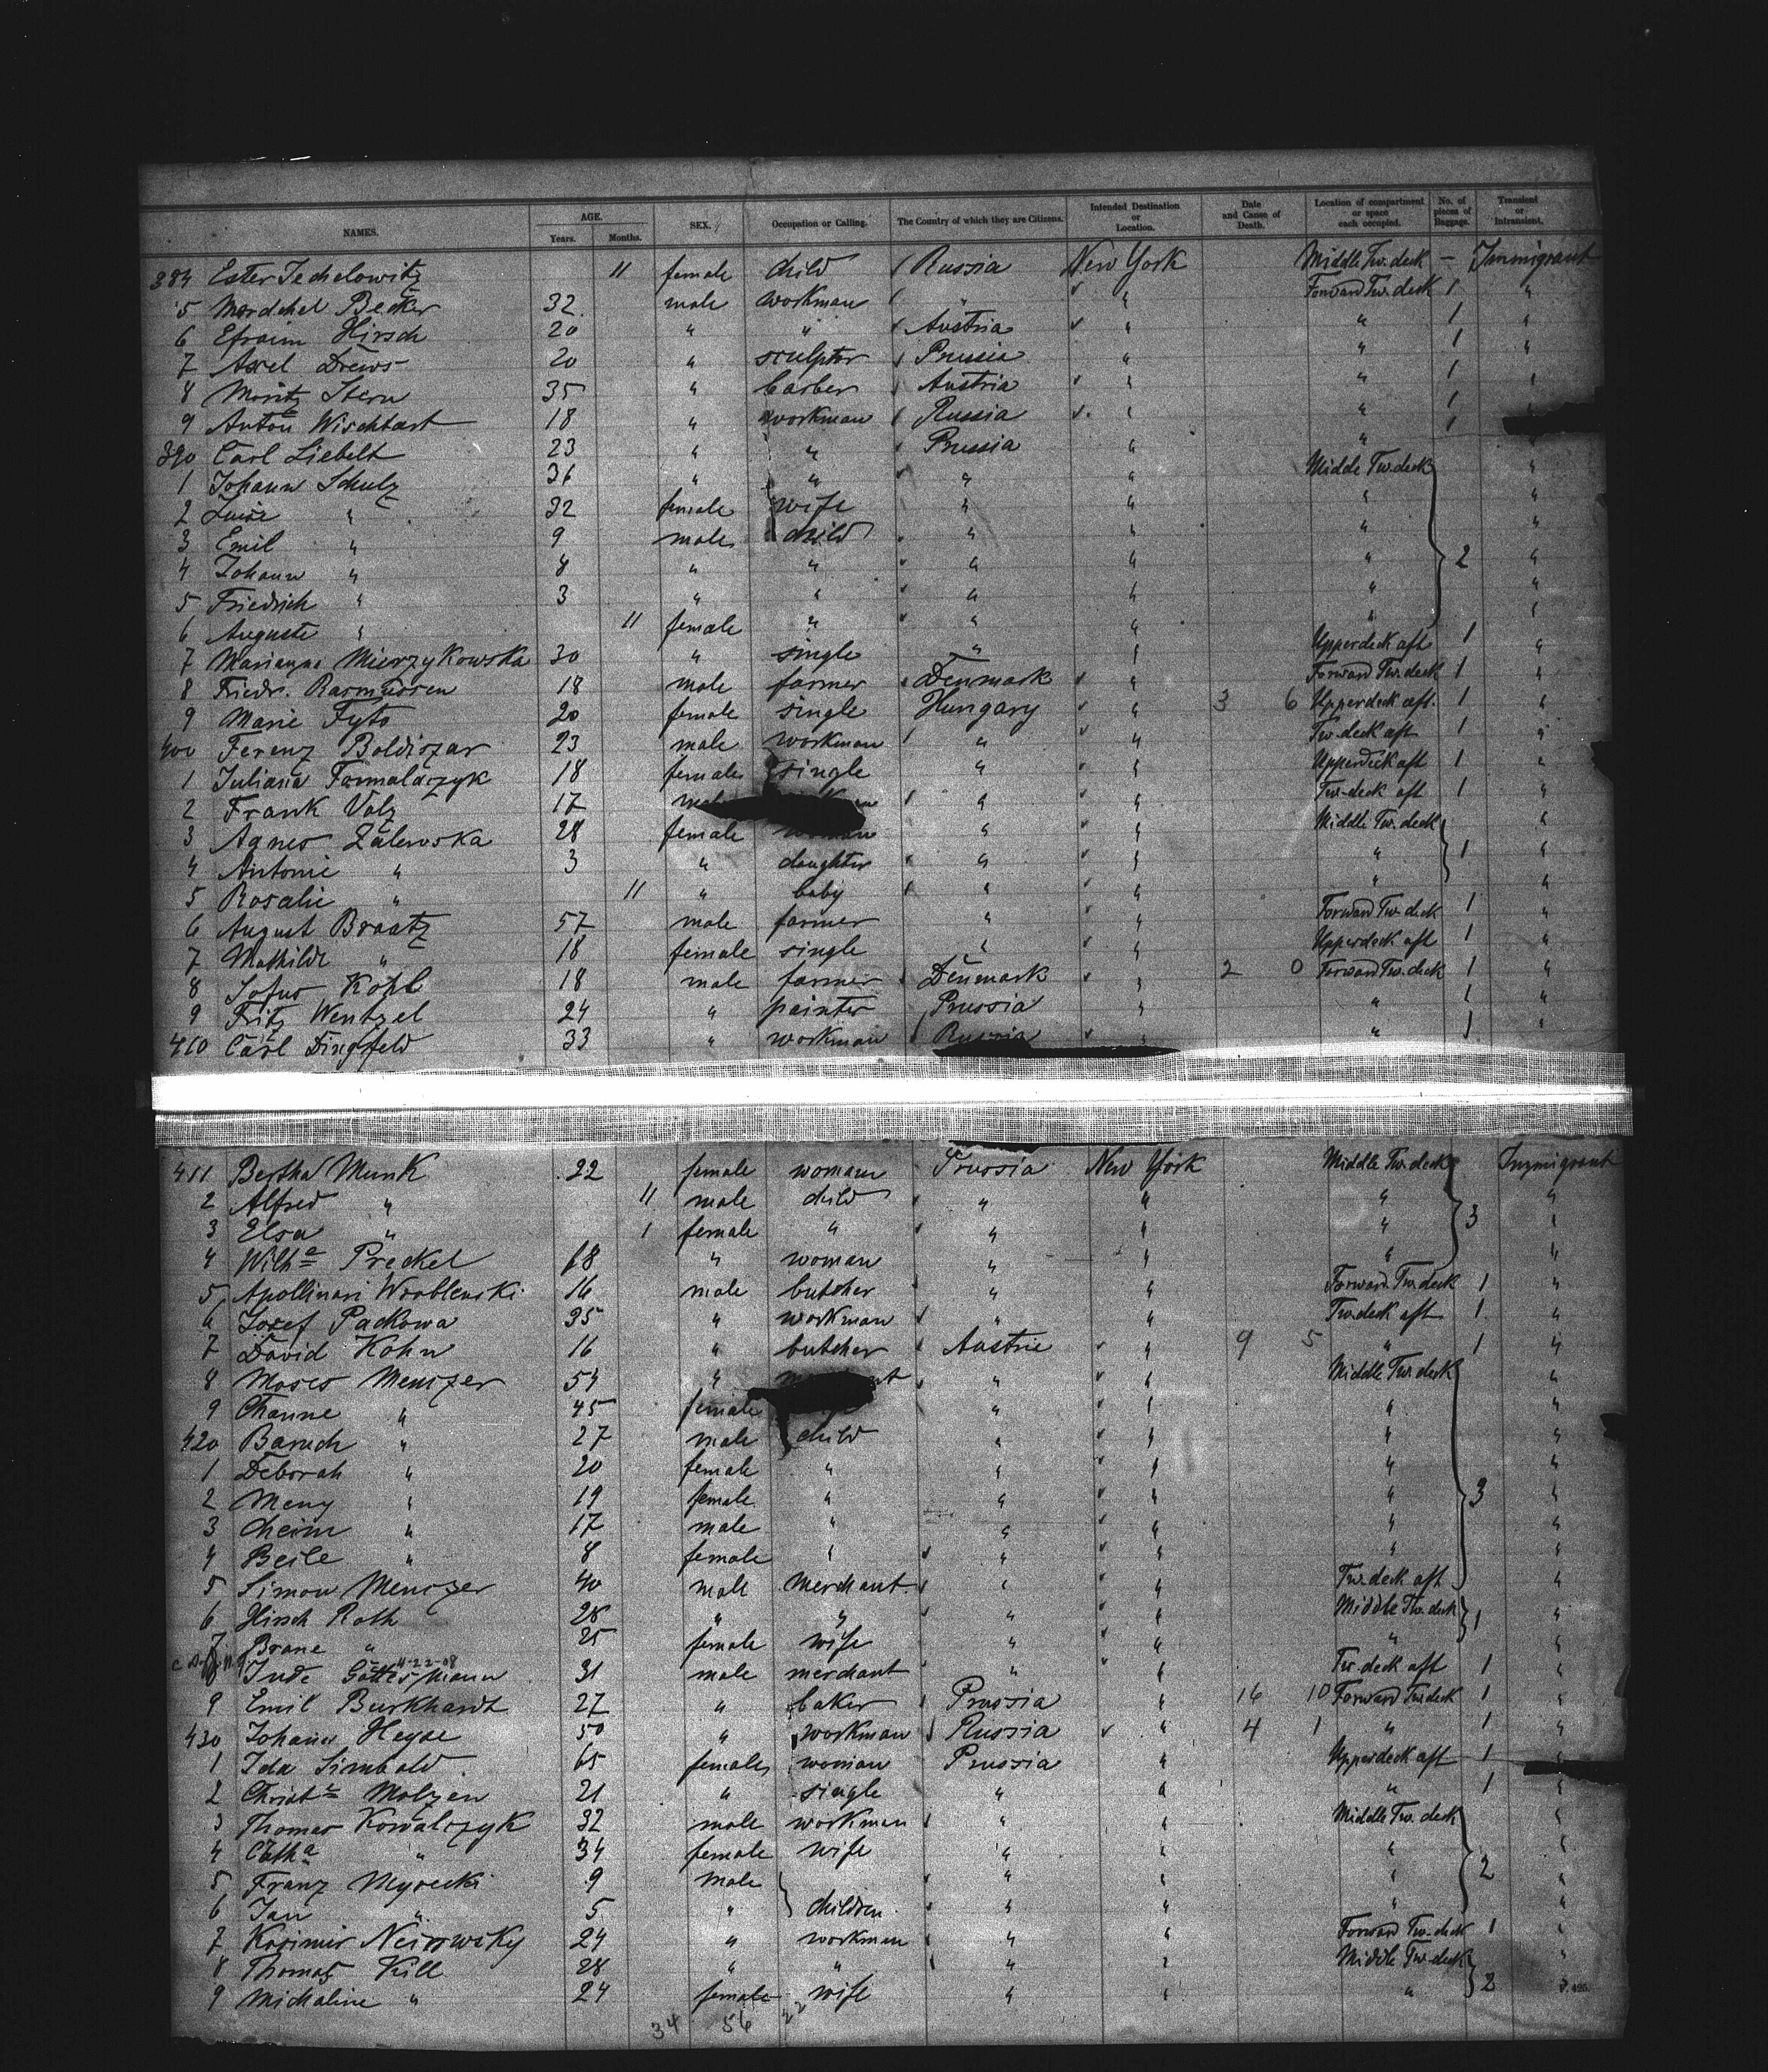 NAMES. AGE. Years. Months. SEX. Occupation or Calling. The Country of which they are Citizens. Intended Destination or Location. Date and Cause of Death. Location of compartment or space each occupied. No. of pieces of Baggage. Transient or Intransient.
384 Ester Jechelowitz 11 female child Russia New York Middle Tw. deck — Immigrant
5 Mordchel Becker 32 male workman " " Forward Tw. deck 1 "
6 Efraim Hirsch 20 " " Austria " " 1 "
7 Axel Drews 20 " sculptor Prussia " " 1 "
8 Moritz Stern 35 " barber Austria " " 1 "
9 Anton Wischbart 18 " workman Russia " " 1
390 Carl Liebelt 23 " " Prussia " " 1 "
1 Johann Schulz 36 " " " " Middle Tw. deck "
2 Luise " 32 female wife " " " "
3 Emil " 9 male child " " " "
4 Johann " 8 " " " " " 2 "
5 Friedrich " 3 " " " " " "
6 Auguste " 11 female " " " " "
7 Marianna Mierzykowska 30 " single " " Upperdeck aft 1 "
8 Friedr. Rasmussen 18 male farmer Denmark " Forward Tw. deck 1 "
9 Marie Fyto 20 female single Hungary " 3 6 Upperdeck aft. 1 "
400 Ferenz Boldiszar 23 male workman " " Tw. deck aft 1 "
1 Juliana Formalarzyk 18 female single " " Upperdeck aft 1 "
2 Frank Volz 17 " " Tw-deck aft 1 "
3 Agnes Zalewska 28 female woman " " Middle Tw. deck "
4 Antonie " 3 " daughter " " " 1 "
5 Rosalie " 11 " baby " " " "
6 August Braatz 57 male farmer " " Forward Tw. deck 1 "
7 Mathilde " 18 female single " " Upperdeck aft 1 "
8 Sofus Kohl 18 male farmer Denmark " 2 0 Forward Tw. deck 1 "
9 Fritz Wentzel 24 " painter Prussia " " 1 "
410 Carl Dingfeld 33 " workman Russia " " 1 "
411 Bertha Munk 22 female woman Prussia New York Middle Tw. deck Immigrant
2 Alfred " 11 male child " " " "
3 Elsa " 1 female " " " " 3 "
4 Wilha Preckel 18 " woman " " " "
5 Apollinari Wroblewski 16 male butcher " " Forward Tw. deck 1 "
6 Josef Packowa 35 " workman " " Tw. deck aft 1 "
7 David Kohn 16 " butcher Austria " 9 5 " 1 "
8 Moses Menczer 54 " " " Middle Tw. deck "
9 Channe " 45 female " " " "
420 Baruch " 27 male child " " " "
1 Deborah " 20 female " " " " "
2 Meny " 19 female " " " " 3 "
3 Cheim " 17 male " " " " "
4 Beile " 8 female " " " " "
5 Simon Menczer 40 male Merchant " " Tw. deck aft "
6 Hirsch Roth 28 " " " " Middle Tw. deck 1 "
7 Brane " 25 female wife " " " "
4-22-08
8 Jude Gottesmann 31 male merchant " " Tw. deck aft 1 "
9 Emil Burkhardt 27 " baker Prussia " 16 10 Forward Tw. deck 1 "
430 Johann Heyse 50 " workman Russia " 4 1 " 1 "
1 Ida Simbald 65 female woman Prussia " Upperdeck aft 1 "
2 Christne Molzen 21 " single " " " 1 "
3 Thomas Kowalczyk 32 male workman " " Middle Tw. deck "
4 Catha " 34 female wife " " " "
5 Franz Mysecki 9 male " " " 2 "
6 Jan " 5 " children " " " "
7 Kasimir 24 " workman " " Forward Tw. deck 1 "
8 Thomas Kill 28 " " " " Middle Tw. deck "
9 Michaline " 24 female wife " " " 2
34 56 22